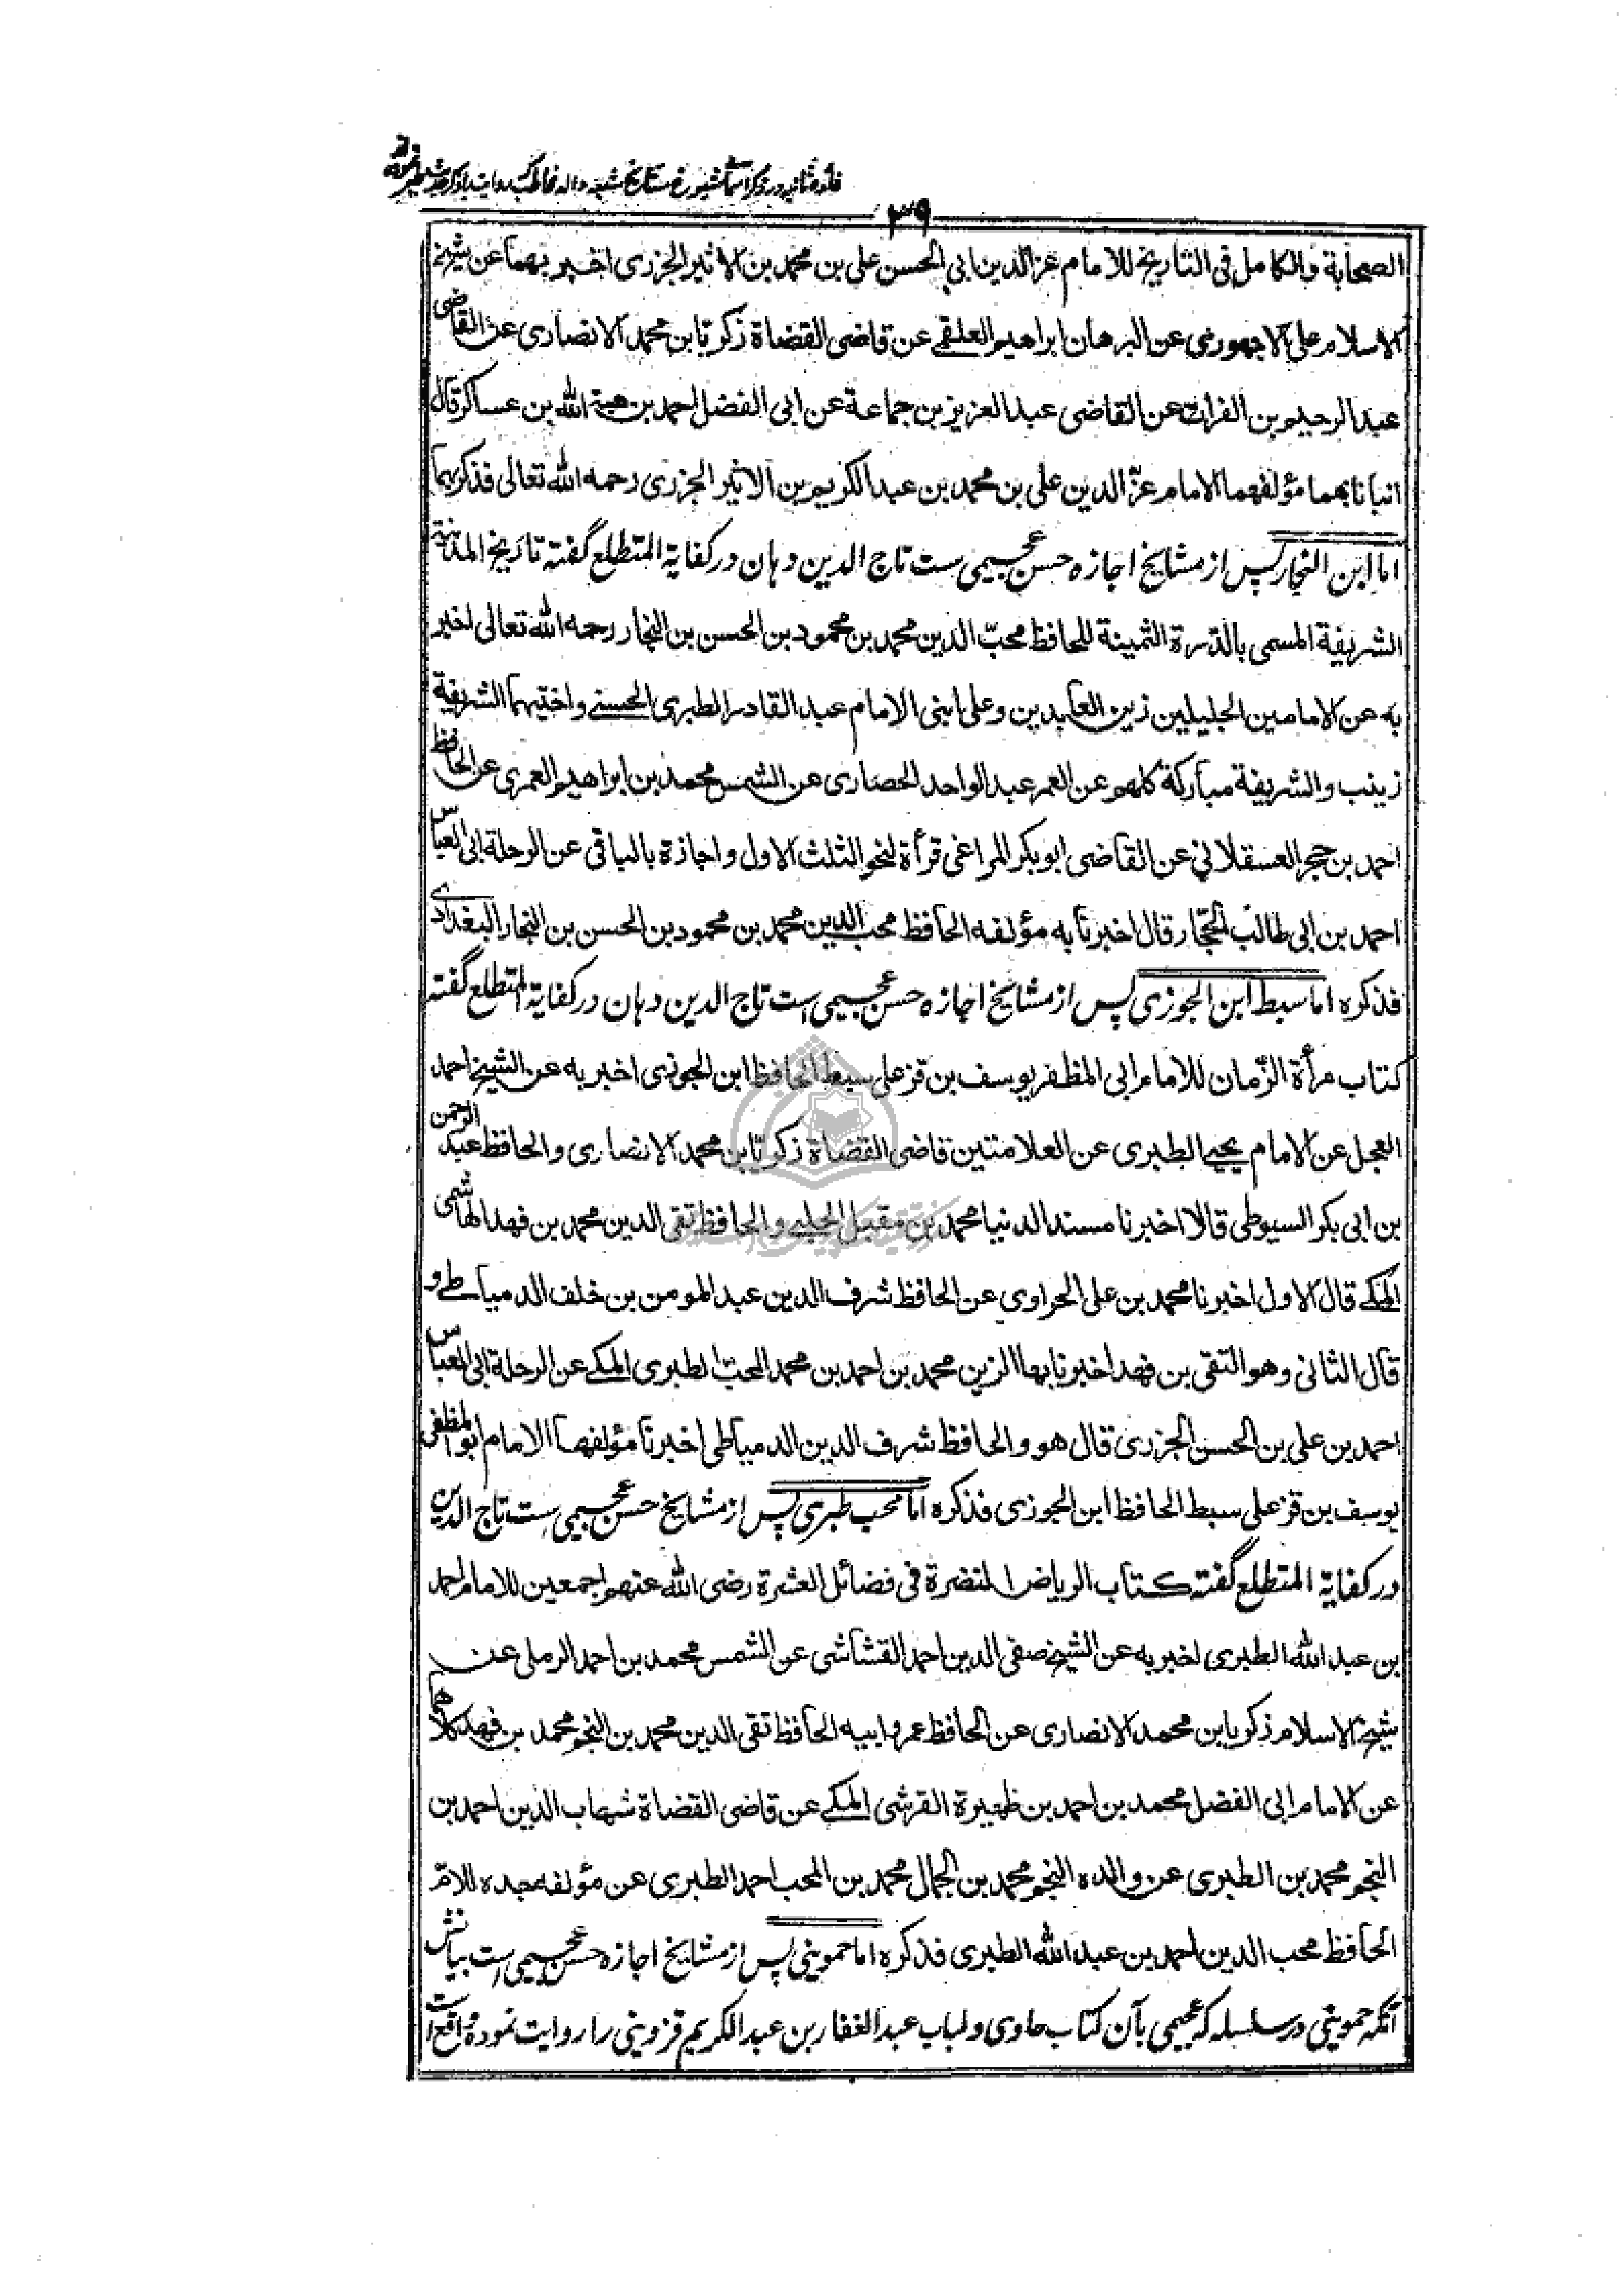 ۳۹
الصحابة والكامل فى التاريخ للامام عز الدين ابى الحسن على بن محمد بن الاثير الجزرى اخبر بهما عن شيخ
الاسلام على الاجهورى عن البرهان ابراهيم العلقمى عن قاضى القضاة زكريا بن محمد الانصارى عن القاضى
عبد الرحيم بن الفرات عن القاضى عبد العزيز بن جماعة عن ابى الفضل احمد بن هبة الله بن عساكر قال
انبأنا بهما مؤلفهما الامام عز الدين على بن محمد بن عبد الكريم بن الاثير الجزرى رحمه الله تعالى فذكرهما
اما ابن النجار پس از مشايخ اجازه حسن عجيمى ست تاج الدين دهان در كفاية المتطلع گفته تاريخ المدينة
الشريفة المسمى بالدرة الثمينة للحافظ محب الدين محمد بن محمود بن الحسن بن النجار رحمه الله تعالى اخبر
به عن الامامين الجليلين زين العابدين وعلى ابنى الامام عبد القادر الطبرى الحسنى واختيهما الشريفة
زينب والشريفة مباركة كلهم عن المعمر عبد الواحد الحصارى عن الشمس محمد بن ابراهيم العمرى عن الحافظ
احمد بن حجر العسقلانى عن القاضى ابو بكر المراغى قرأة لنحو الثلث الاول واجازة بالباقى عن الرحلة ابى العباس
احمد بن ابى طالب الحجار قال اخبرنا به مؤلفه الحافظ محب الدين محمد بن محمود بن الحسن بن النجار البغدادى
فذكره اما سبط ابن الجوزى پس از مشايخ اجازه حسن عجيمى است تاج الدين دهان در كفاية المتطلع گفته
كتاب مرأة الزمان للامام ابى المظفر يوسف بن قزعلى سبط الحافظ ابن الجوزى اخبر به عن الشيخ احمد
العجل عن الامام يحيى الطبرى عن العلامتين قاضى القضاة زكريا بن محمد الانصارى والحافظ عبد الرحمن
بن ابى بكر السيوطى قالا اخبرنا مسند الدنيا محمد بن مقبل الحلبى والحافظ تقى الدين محمد بن فهد الهاشمى
المكى قال الاول اخبرنا محمد بن على الحراوى عن الحافظ شرف الدين عبد المومن بن خلف الدمياطى و
قال الثانى وهو التقى بن فهد اخبرنا بها الزين محمد بن احمد بن محمد المحب الطبرى المكى عن الرحلة ابى العباس
احمد بن على بن الحسن الجزرى قال هو والحافظ شرف الدين الدمياطى اخبرنا مؤلفها الامام ابو المظفر
يوسف بن قزعلى سبط الحافظ ابن الجوزى فذكره اما محب طبرى پس از مشايخ حسن عجيمى ست تاج الدين
در كفاية المتطلع گفته كتاب الرياض النضرة فى فضائل العشرة رضى الله عنهم اجمعين للامام احمد
بن عبد الله الطبرى اخبر به عن الشيخ صفى الدين احمد القشاشى عن الشمس محمد بن احمد الرملى عن
شيخ الاسلام زكريا بن محمد الانصارى عن الحافظ عمر وابيه الحافظ تقى الدين محمد بن النجم محمد بن فهد كلاهما
عن الامام ابى الفضل محمد بن احمد بن ظهيرة القرشى المكى عن قاضى القضاة شهاب الدين احمد بن
النجم محمد بن الطبرى عن والده النجم محمد بن الجمال محمد بن المحب احمد الطبرى عن مؤلفه جده للام
الحافظ محب الدين احمد بن عبد الله الطبرى فذكره اما حموينى پس از مشايخ اجازه حسن عجيمى است بيانش
آنكه حموينى در سلسله كه عجيمى بآن كتاب حاوى ولباب عبد الغفار بن عبد الكريم قزوينى را روايت نموده واقع است